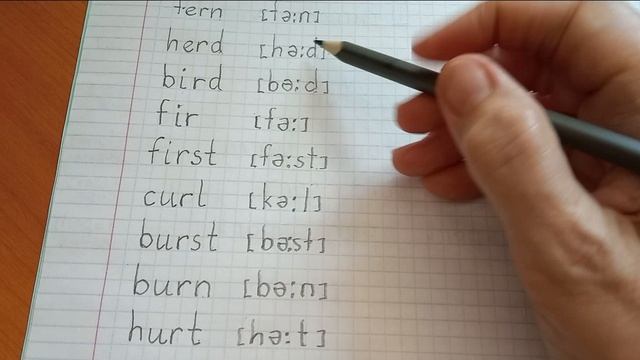 fern [fə:n]
herd [hə:d]
bird [bə:d]
fir [fə:]
first [fə:st]
curl [kə:l]
burst [bə:st]
burn [bə:n]
hurt [hə:t]